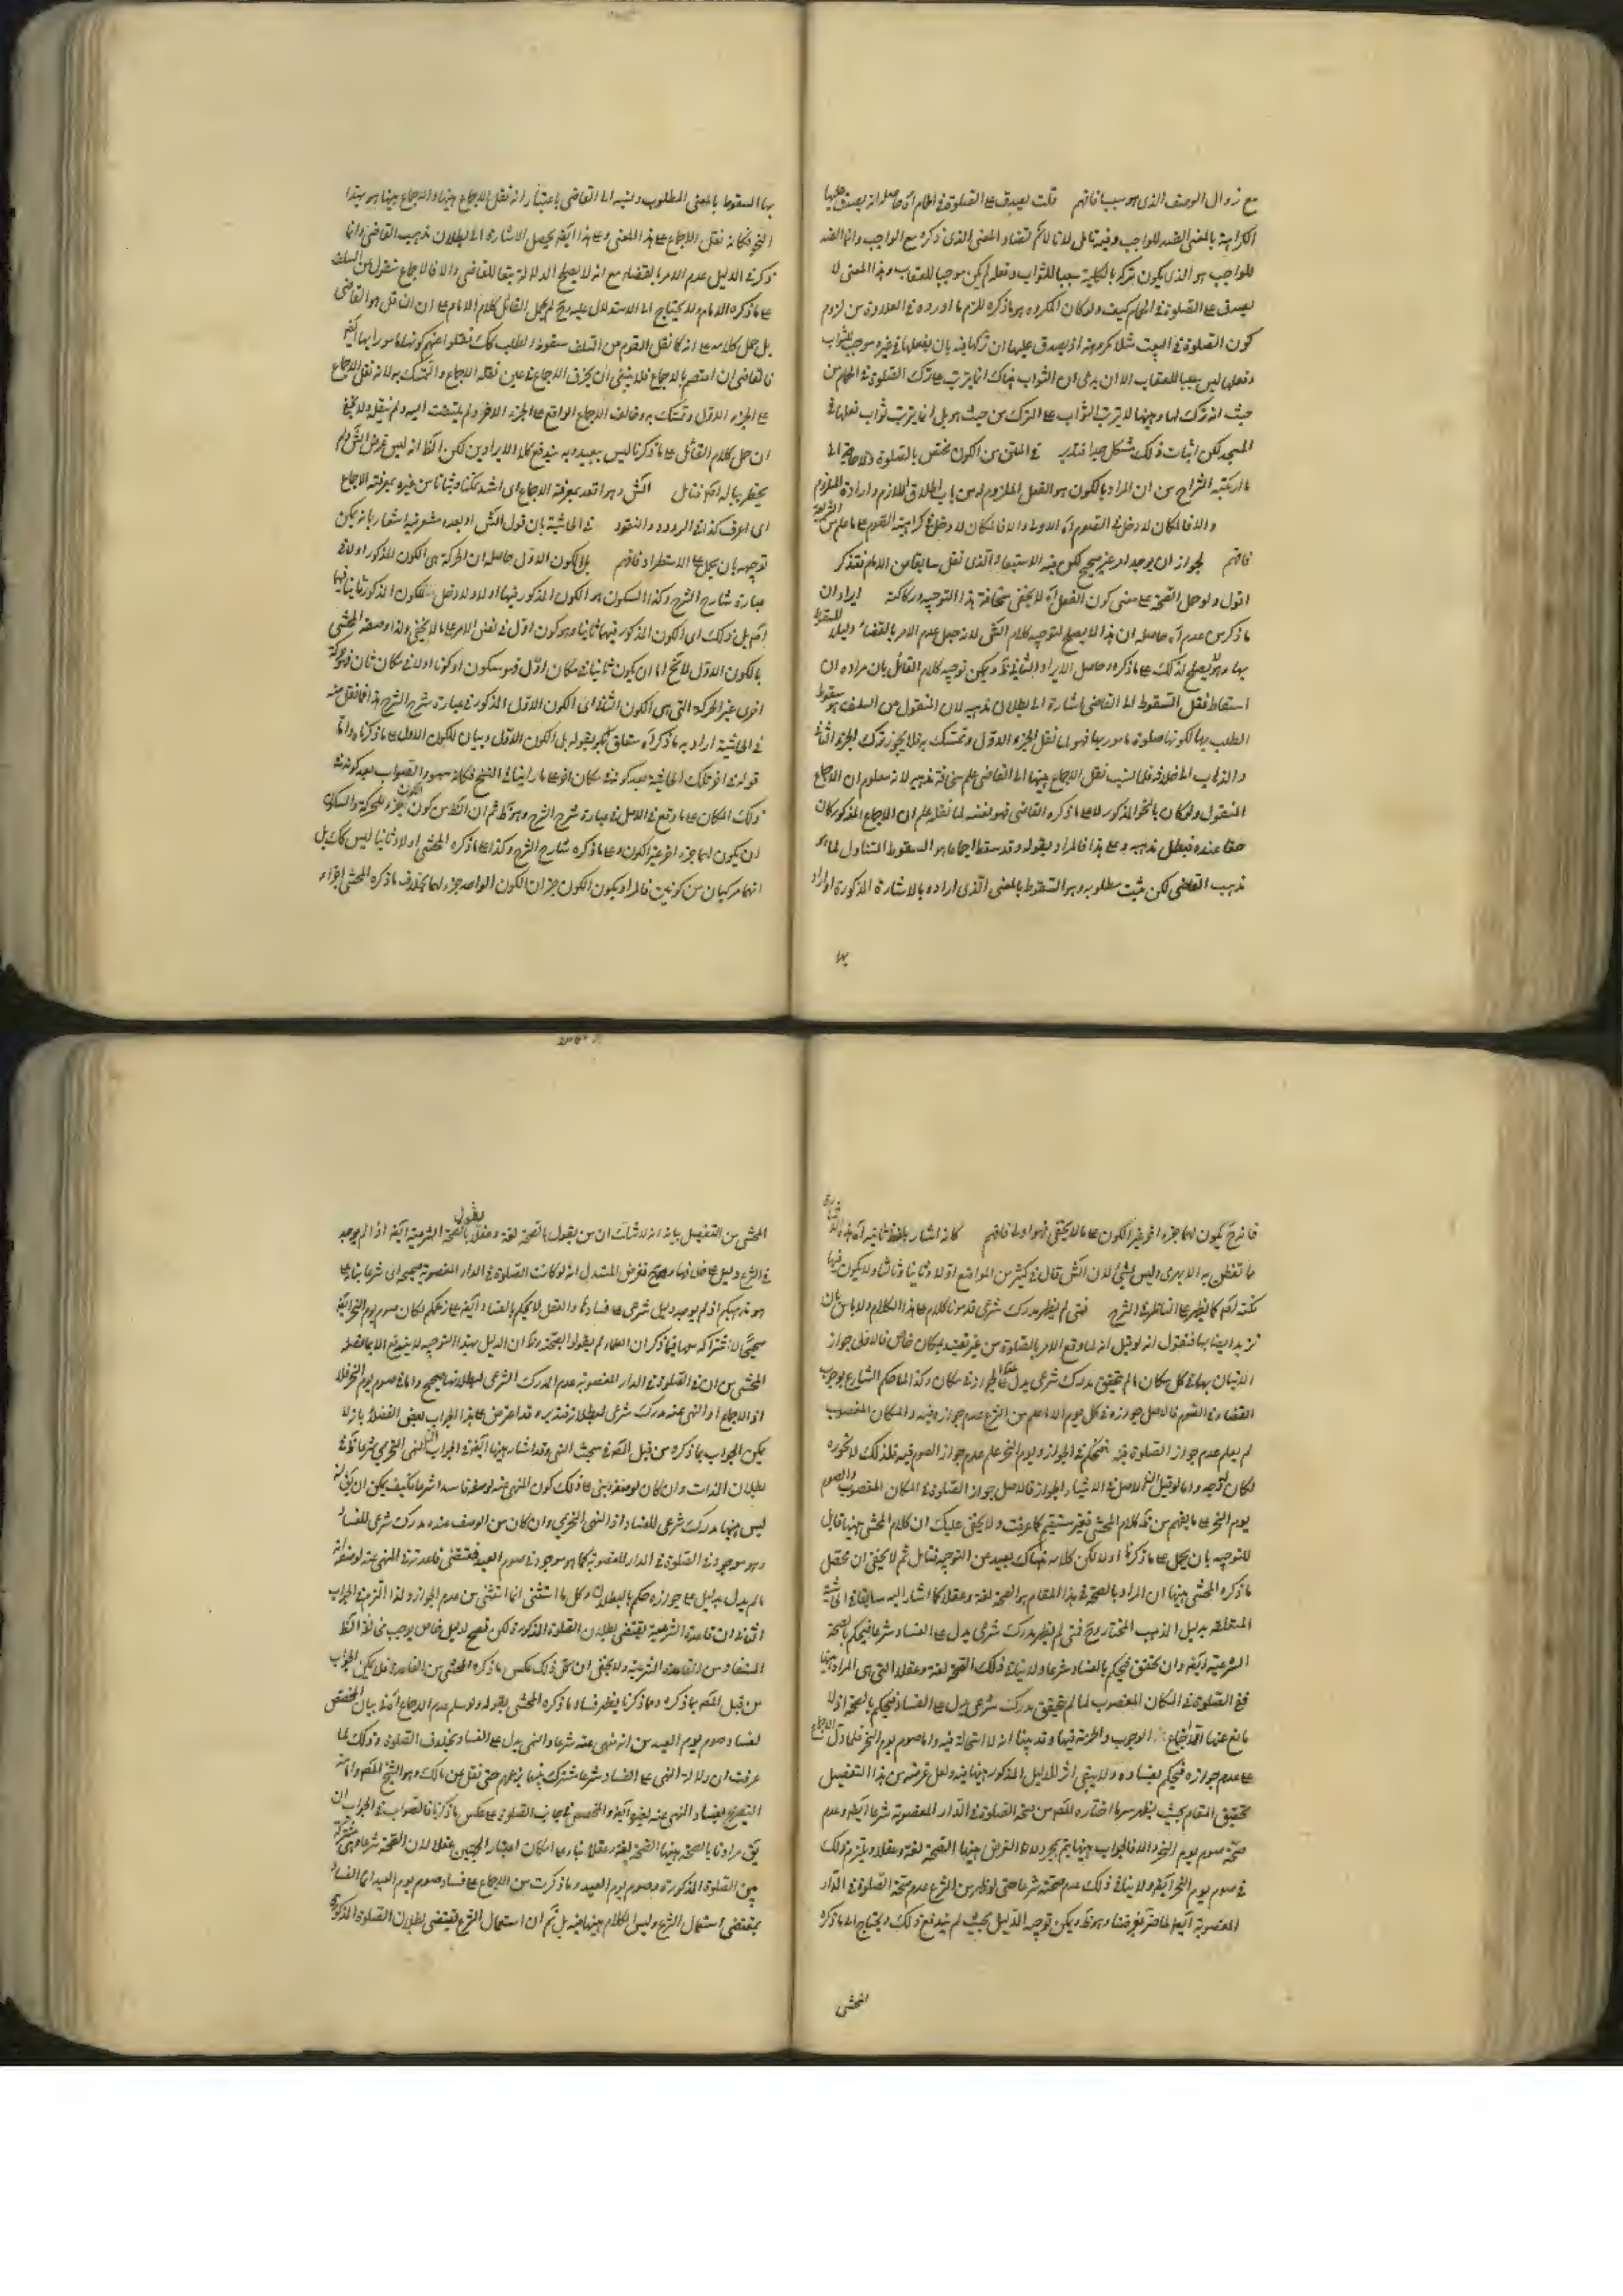 مع زوال الوصف الذى هو سبب فافهم قلت يصدق على الصلوة فى الحمام آه حاصله انه يصدق عليها
الكراهية بالمعنى الضد للواجب وفيه تامل لانا لا نم تضاد المعنى الذى ذكره مع الواجب وانما الضد
للواجب هو الذى يكون تركه بالكلية سببا للثواب وفعله لم يكن موجبا للعقاب وهذا المعنى لا
يصدق على الصلوة فى الحمام كيف ولو كان المكروه هو ما ذكره للزم ما اورده فى العلاوة من لزوم
كون الصلوة فى البيت مثلا مكروهة اذ يصدق عليها ان تركها فيه بان يفعلها فى غيره موجب للثواب
وفعلها ليس سببا للعقاب الا ان يدعى ان الثواب هناك انما يترتب على ترك الصلوة فى الحمام من
حيث انه ترك لها وههنا لا يترتب الثواب على الترك من حيث هو بل انما يترتب ثواب فعلها فى
المسجد لكن اثبات ذلك مشكل جدا فتدبر فى المتن من الكون مختص بالصلوة ولا حاجة الى
ما ارتكبه الشراح من ان المراد بالكون هو الفعل الملزوم له من باب اطلاق اللازم وارادة الملزوم
والا فالمكان لا دخل فى الصوم آه الاولى والا فالمكان لا دخل فى كراهية القوم على ما علم من الشريعة
فافهم لجواز ان يوجد امر غير صحيح لكن فيه الاستبعاد الذى نقل سابقا من الامام فتذكر
اقول ولو حمل الصحة على معنى كون الفعل آه لا يخفى سخافة هذا التوجيه وركاكته ايراد ان
ما ذكر من عدم آه حاصله ان هذا لا يصلح لتوجيه كلام الش لانه جعل عدم الامر بالقضاء دليلا للسقوط
بها وهو لا يصلح لذلك على ما ذكره وحاصل الايراد الثانى ظ ويمكن توجيه كلام القائل بان مراده ان
اسقاط فقل السقوط الى القاضى اشارة الى بطلان مذهبه لان المنقول من السلف هو سقوط
الطلب بها لكونها صلوة مامور بها فهو لما نقل الجزء الاول وتمسك به فلا يجوز ترك الجزء الثانى
والذهاب الى خلافه فلما نسب نقل الاجماع ههنا الى القاضى علم سخافة مذهبه لانه معلوم ان الاجماع
المنقول ولو كان بالنحو المذكور لا على ما ذكره القاضى فهو نفسه لما نقله علم ان الاجماع المذكور كان
حقا عنده فبطل مذهبه وعلى هذا فالمراد بقوله وقد سقط اجماعا هو السقوط المتناول لما هو
مذهب القاضى لكن يثبت مطلوبه وهو السقوط بالمعنى الذى اراده بالاشارة المذكورة او اراد
بها
بها السقوط بالمعنى المطلوب ونسبه الى القاضى باعتبار انه نقل الاجماع ههنا والاجماع ههنا هو بهذا
النحو فكانه نقل الاجماع على هذا المعنى وعلى هذا ايضا يحصل الاشارة الى بطلان مذهب القاضى وانما
ذكر فى الدليل عدم الامر بالقضاء مع انه لا يصلح الدلالة تبعا للقاضى والا فالاجماع منقول من السلف
على ما ذكره الامام ولا يحتاج الى الاستدلال عليه وح لم يحمل القائل كلام الامام على ان ناقل هو القاضى
بل حمل كلامه على انه كما نقل القوم من السلف سقوط الطلب كك نقلوا عنهم كونها مامورا بها ايض
فالقاضى ان اعتصم بالاجماع فلا ينبغى ان يخرق الاجماع فى عين نقله الاجماع والتمسك به لانه نقل الاجماع
على الجزء الاول وتمسك به وخالف الاجماع الواقع على الجزء الاخر ولم يلتفت اليه ولم ينقله ولا يخفى
ان حمل كلام القائل على ما ذكرنا ليس ببعيد وبه يندفع كلا الايرادين لكن الظ انه ليس غرض الش ولم
يخطر بباله اصلا فتامل الش وهو اقعد بمعرفة الاجماع اى اشد تمكنا وثباتا من غيره بمعرفة الاجماع
اى اعرف كذا فى الردود والنقود فى الحاشية بان قول الش او بعده مشعر فيه اشعار بانه يمكن
توجيهه بان يحمل على الاستطراد فافهم بل الكون الاول حاصله ان الحركة هى الكون المذكور اولا فى
عبارة شارح الشرح وكذا السكون هو الكون المذكور فيها اولا ولا دخل للكون المذكور ثانيا فيها
اصلا بل ذلك اى الكون المذكور فيها ثانيا وهو كون اول فى نفس الامر على ما لا يخفى ولذا وصفه المحشى
بالكون الاول لا يخ اما ان يكون ثانيا فى مكان اول فهو سكون او كونا اولا فى مكان ثان فهو حركة
اخرى غير الحركة التى هى الكون الثانى اى الكون الاول المذكور فى عبارة شرح الشرح هذا فما نقل منه
فى الحاشية اراد به ما ذكر آه متعلق بقوله بل الكون الاول وبيان للكون الاول على ما ذكرنا واما
قوله فى اخر تلك الحاشية بعد كونه فى مكان اخر على ما راينا فى النسخ فكانه سهو والصواب بعد كونه فى
ذلك المكان على ما وقع فى الاصل فى عبارة شرح الشرح وهو ظ ثم ان الظ من كون الكون جزء للحركة والسكون
ان يكون لهما جزء اخر غير الكون وعلى ما ذكره شارح الشرح وكذا على ما ذكره المحشى اولا وثانيا ليس كك بل
انهما مركبان من كونين فالمراد بكون الكون جزء ان الكون الواحد جزء لهما بخلاف ما ذكره المحشى اجزاء
فانه ح يكون لهما جزء اخر غير الكون على ما لا يخفى فهو اولى فافهم كانه اشار بلفظ ثانيه آه
ما تفطن به الابهرى وليس بشئ لان الش قال فى كثير من المواضع اولا وثانيا وثالثا ولا يكون فيها
نكتة اصلا كما يظهر على الناظر فى الشرح فمتى لم يظهر مدرك شرعى قد مر منا كلام على هذا الكلام ولا باس بان
نزيد ايضا بها فنقول انه لو قيل انه لما وقع الامر بالصلوة من غير تقييد بمكان خاص فالاصل جواز
الاتيان بها فى كل مكان ما لم يتحقق مدرك شرعى يدل على عدم الجواز فى مكان وكذا لما حكم الشارع بوجوب
القضاء فى الصوم فالاصل جوازه فى كل يوم الا ما علم من الشرع عدم جوازه فيه والمكان المغصوب
لم يعلم عدم جواز الصلوة فيه فيحكم فى الجواز ويوم النحر علم عدم جواز الصوم فيه فلذلك لا نجوزه
لكان له وجه واما لو قيل ان الاصل فى الاشياء الجواز فالاصل جواز الصلوة فى المكان المغصوب والصوم
يوم النحر على ما يفهم من ظ كلام المحشى فغير مستقيم كما عرفت ولا يخفى عليك ان كلام المحشى ههنا قابل
للتوجيه بان يحمل على ما ذكرنا اولا لكن كلامه هناك بعيد عن التوجيه فتامل ثم لا يخفى ان محصل
ما ذكره المحشى ههنا ان المراد بالصحة فى هذا المقام هو الصحة لغة وعقلا كما اشار اليه سابقا فى الحاشية
المتعلقة بدليل المذهب المختار وح فمتى لم يظهر مدرك شرعى يدل على الفساد شرعا فيحكم بالصحة
الشرعية ايضا وان تحقق فيحكم بالفساد شرعا ولا ينافى ذلك الصحة لغة وعقلا التى هى المراد ههنا
ففى الصلوة فى المكان المغصوب لما لم يتحقق مدرك شرعى يدل على الفساد فيحكم بالصحة اذ لا
مانع عنها الا اجتماع الوجوب والحرمة فيها وقد بينا انه لا استحالة فيه واما صوم يوم النحر فلما دل الاجماع
على عدم جوازه فيحكم بفساده ولا يبقى اثر للدليل المذكور ههنا فيه ولعل غرضه من هذا التفصيل
تحقيق المقام بحيث يظهر سر ما اختاره المصنف من صحة الصلوة فى الدار المغصوبة شرعا ايضا وعدم
صحة صوم يوم النحر والا فالجواب ههنا يتم بمجرد ادعاء الغرض ههنا الصحة لغة وعقلا ويلتزم ذلك
فى صوم يوم النحر ايضا ولا ينافى ذلك عدم صحته شرعا حتى لو ظهر من الشرع عدم صحة الصلوة فى الدار
المغصوبة ايضا لما ضر بغرضنا وهو ظ ويمكن توجيه الدليل بحيث لم يندفع بذلك ويحتاج الى ما ذكره
المحشى
المحشى من التفصيل بيانه انه لا شك ان من يقول بالصحة لغة وعقلا يقول بالصحة الشرعية ايضا اذا لم يوجد
فى الشرع دليل على خلافها وح فغرض المستدل انه لو كانت الصلوة فى الدار المغصوبة صحيحة اى شرعا بناء على
هو مذهبكم اذ لم يوجد دليل شرعى على فسادها والعقل لا يحكم بالفساد ايضا على زعمكم لكان صوم يوم النحر ايضا
صحيحا لاشتراكه معها فيما ذكر ان العلماء لم يقولوا بصحته وظ ان الدليل بهذا التوجيه لا يندفع الا بما فصله
المحشى من ان فى الصلوة فى الدار المغصوبة عدم المدرك الشرعى لبطلانها صحيح واما فى صوم يوم النحر فلا
اذ الاجماع او النهى عنه مدرك شرعى لبطلانه فتدبر وقد اعترض على هذا الجواب بعض الفضلاء بانه لا
يمكن الجواب بما ذكره من قبل المصنف فى مبحث النهى وقد اشار ههنا ايضا فى الجواب الثانى النهى التحريمى شرعا يدل على
بطلان الذات وان كان لوصفه ينبنى على ذلك كون المنهى عنه لوصفه فاسدا شرعا فكيف يمكن ان يقول انه
ليس ههنا مدرك شرعى للفساد اذ النهى التحريمى وان كان من الوصف عنده مدرك شرعى للفساد
وهو موجود فى الصلوة فى الدار المغصوبة كما هو موجود فى صوم العيد فمقتضى قاعدته فى المنهى عنه لوصفه انه
ما لم يدل بدليل على جوازه حكم بالبطلان وكل ما استثنى انما استثنى من عدم الجواز ولذا التزم فى الجواب
الثانى ان قاعدة الشرعية يقتضى بطلان الصلوة المذكورة لكن تصح لدليل خاص يوجب مخالفة الظ
المستفاد من القاعدة الشرعية ولا يخفى ان كل ذلك عكس ما ذكره المحشى من القاعدة فلا يمكن الجواب
من قبل المصنف بما ذكره وما ذكرنا يظهر فساد ما ذكره المحشى بقوله ولو سلم عدم الاجماع آه فى بيان المخصص
لفساد صوم يوم العيد من انه منهى عنه شرعا والنهى يدل على الفساد بخلاف الصلوة وذلك لما
عرفت ان دلالة النهى على الفساد شرعا مشترك بينهما بزعمهم حتى نقل عن مالك وهو الشيخ المصنف وامامه
التصريح بفساد المنهى عنه لغيره ايضا والمخصص فى جانب الصلوة على عكس ما ذكرنا فالصواب فى الجواب ان
يق مرادنا بالصحة ههنا الصحة لغة وعقلا بناء على امكان اعتبار الجهتين عقلا لان الصحة شرعا وهى مشتركة
بين الصلوة المذكورة وصوم يوم العيد وما ذكرت من الاجماع على فساد صوم يوم العيد انما الفساد
بمقتضى استعمال الشرع وليس الكلام ههنا فيه بل ثم ان استعمال الشرع يقتضى بطلان الصلوة المذكورة